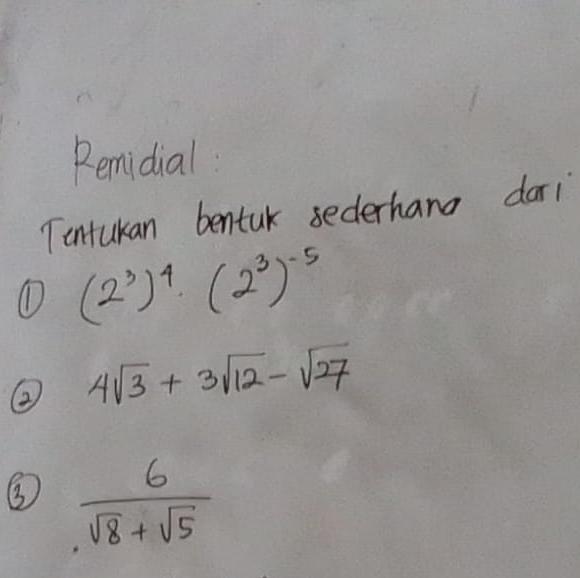 Remidial :
Tentukan bentuk sederhana dari
① (2³)⁴ · (2³)⁻⁵
② 4√3 + 3√12 - √27
③ 6 / (√8 + √5)